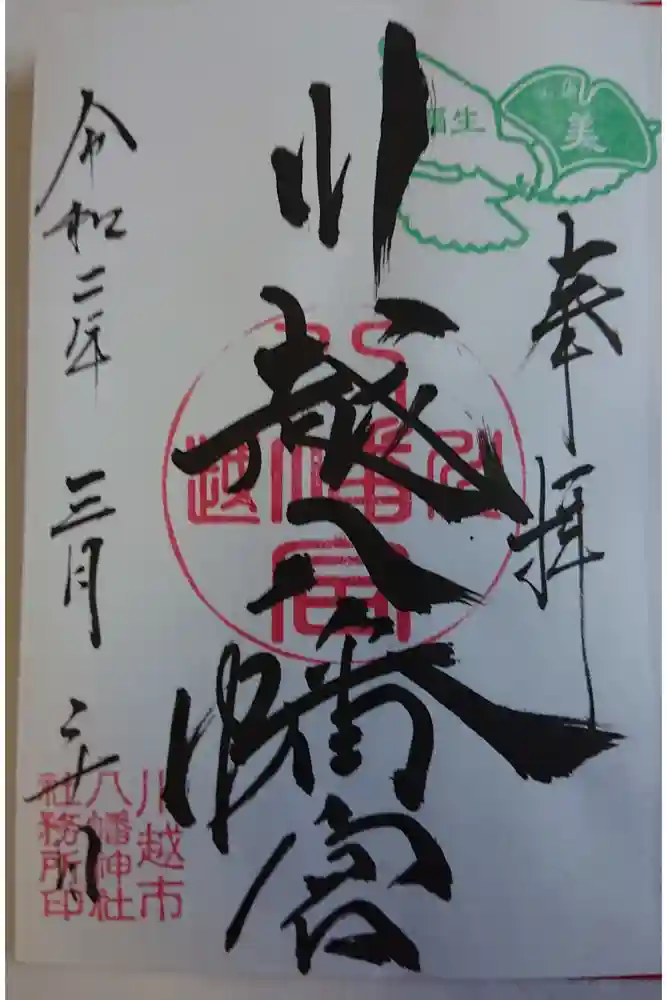 奉拝
川越八幡宮
令和二年 三月 二十八日
弥生
美
川越市
八幡神社
社務所印